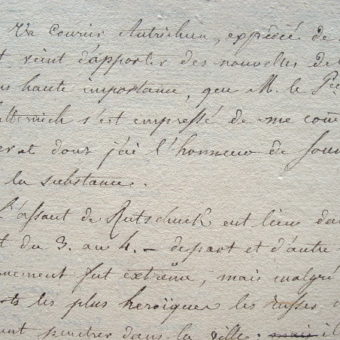 Un courier Autrichien, expédié de
t vient d'apporter des nouvelles de
us haute importance, que M. le Pce
etternich s'est empressé de me com
er et dont j'ai l'honneur de sou
la substance.
L'assaut de Rutschuck eut lieu da
t du 3. au 4. — de part et d'autre
nement fut extrême, mais malgré
rts les plus heroïques les russes
nt penetrer dans la ville: mais il